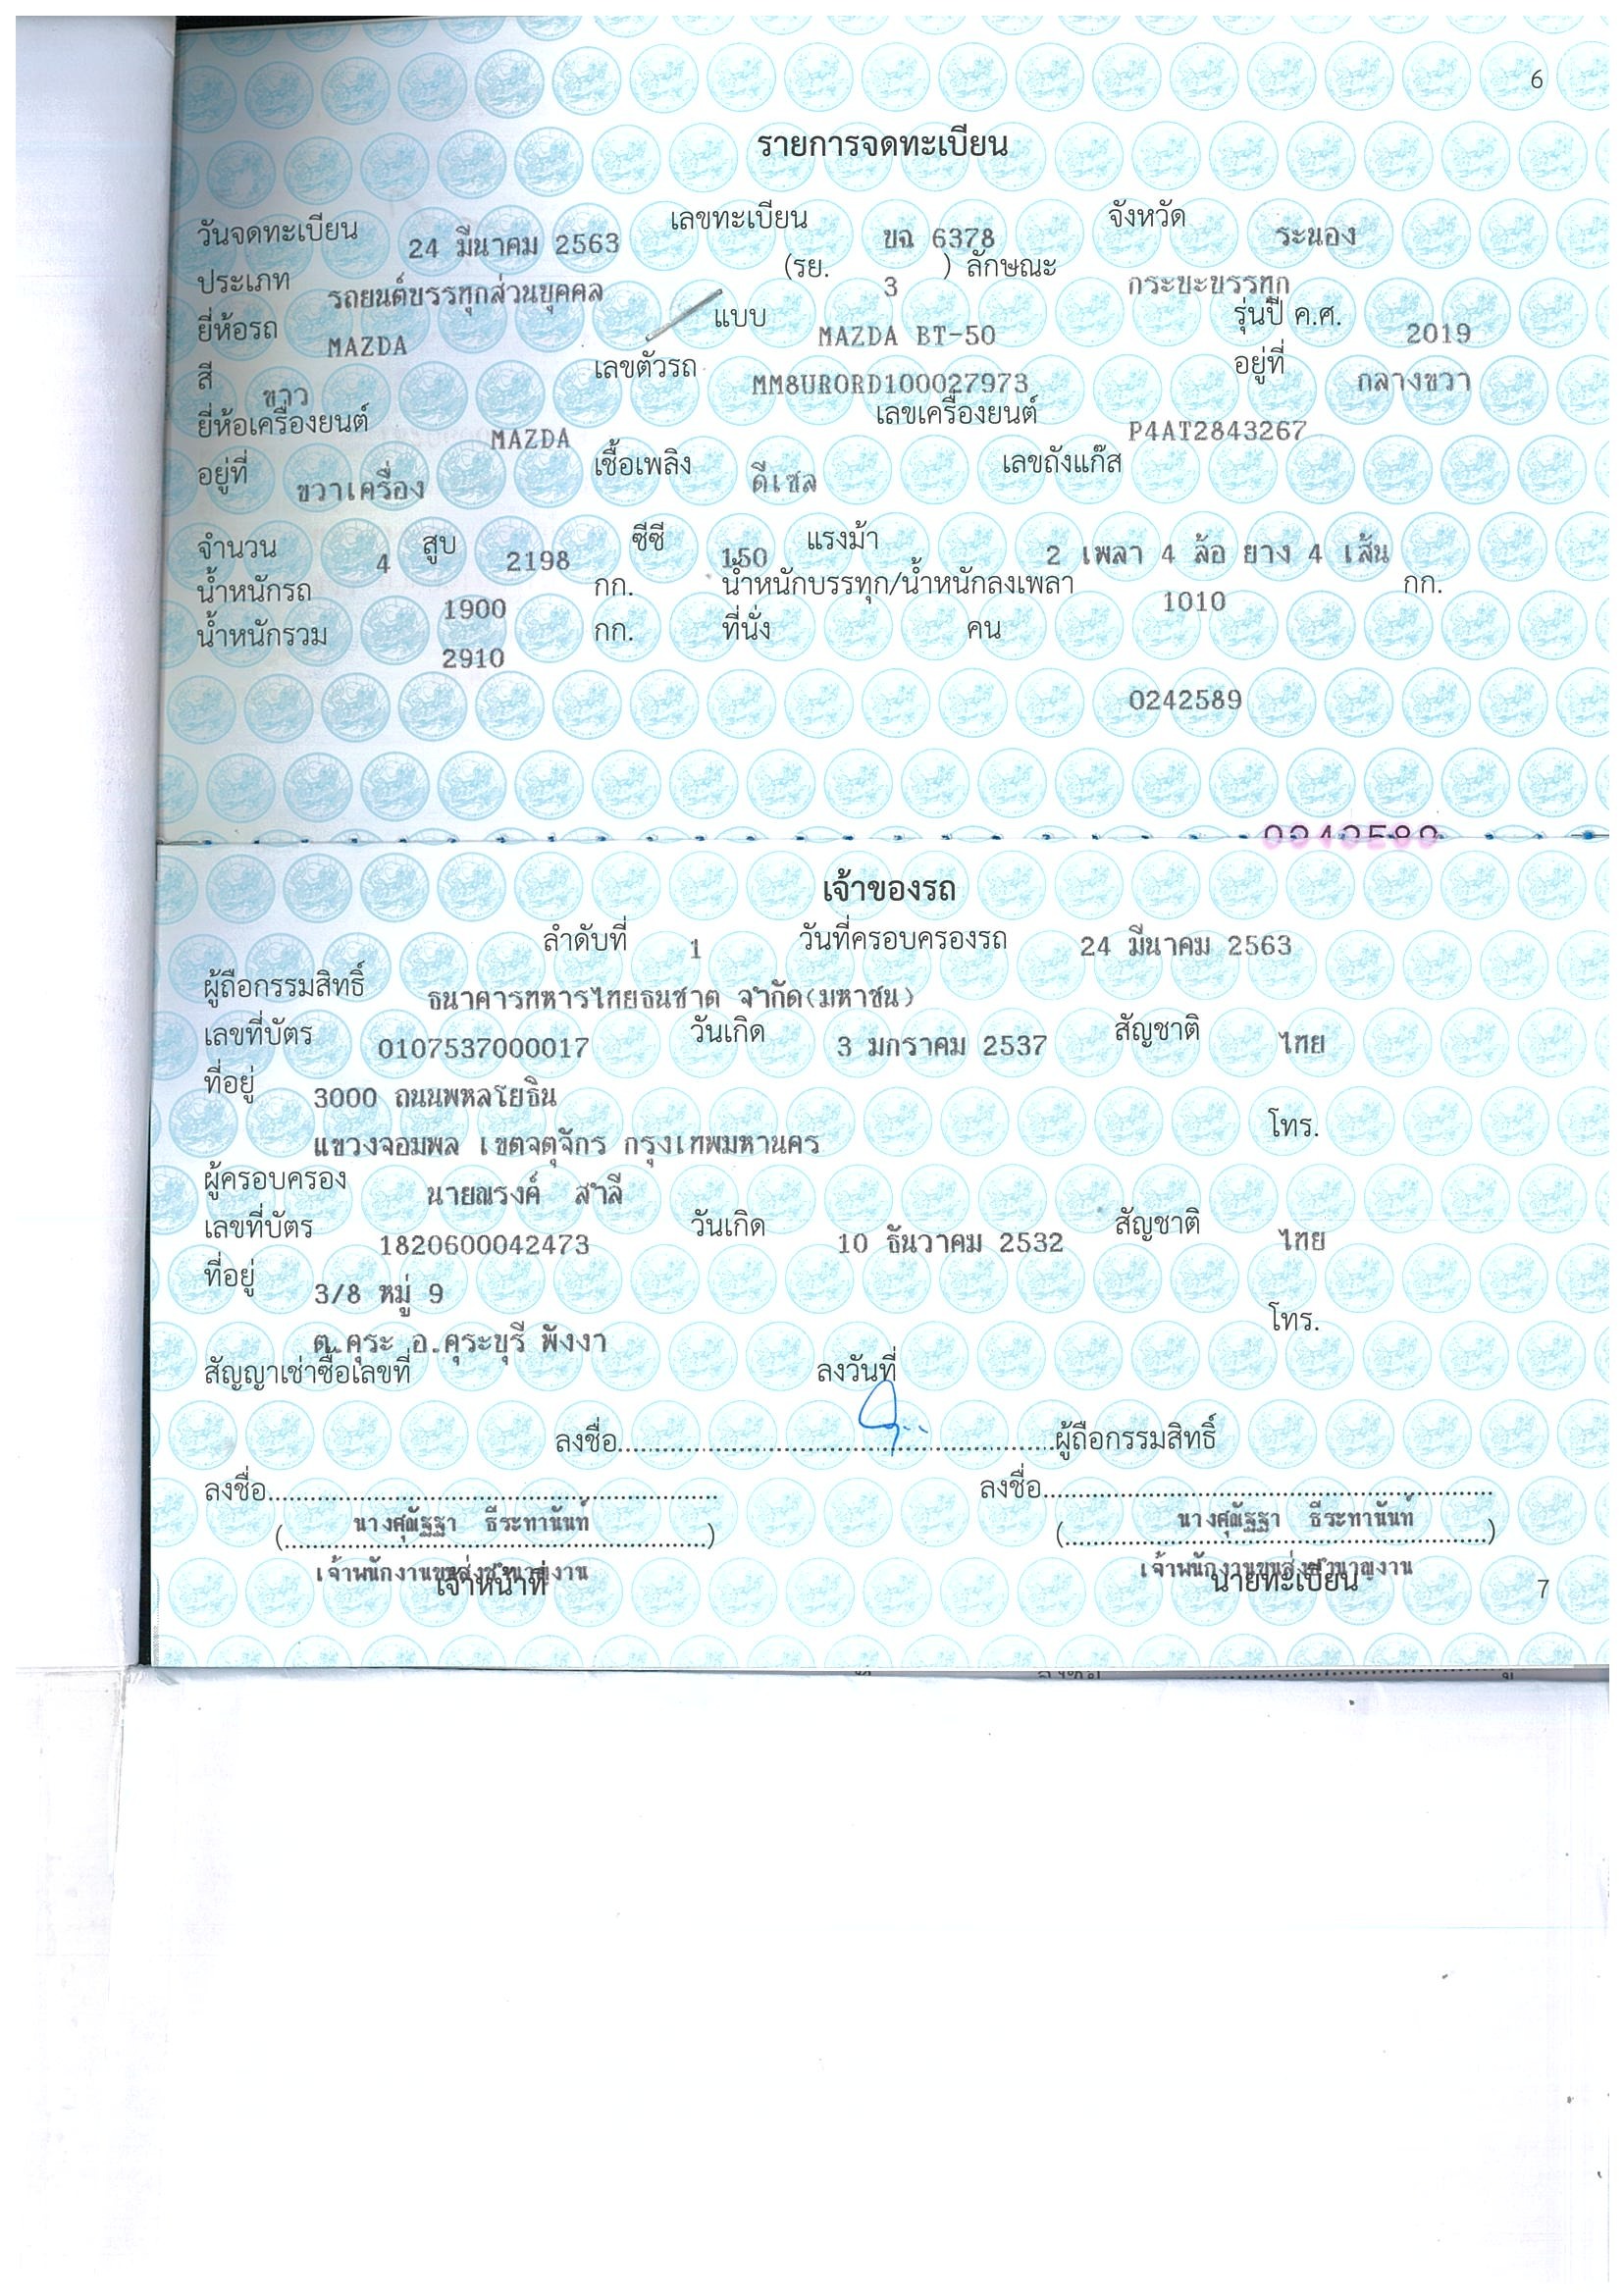 6
รายการจดทะเบียน
วันจดทะเบียน 24 มีนาคม 2563 เลขทะเบียน ขฉ 6378 จังหวัด ระนอง
ประเภท รถยนต์บรรทุกส่วนบุคคล (รย. 3 ) ลักษณะ กระบะบรรทุก
ยี่ห้อรถ MAZDA แบบ MAZDA BT-50 รุ่นปี ค.ศ. 2019
สี ขาว เลขตัวรถ MM8URORD100027973 อยู่ที่ กลางขวา
ยี่ห้อเครื่องยนต์ MAZDA เลขเครื่องยนต์ P4AT2843267
อยู่ที่ ขวาเครื่อง เชื้อเพลิง ดีเซล เลขถังแก๊ส
จำนวน 4 สูบ 2198 ซีซี 150 แรงม้า 2 เพลา 4 ล้อ ยาง 4 เส้น
น้ำหนักรถ 1900 กก. น้ำหนักบรรทุก/น้ำหนักลงเพลา 1010 กก.
น้ำหนักรวม 2910 กก. ที่นั่ง คน
0242589
0242589
เจ้าของรถ
ลำดับที่ 1 วันที่ครอบครองรถ 24 มีนาคม 2563
ผู้ถือกรรมสิทธิ์ ธนาคารทหารไทยธนชาต จำกัด(มหาชน)
เลขที่บัตร 0107537000017 วันเกิด 3 มกราคม 2537 สัญชาติ ไทย
ที่อยู่ 3000 ถนนพหลโยธิน
แขวงจอมพล เขตจตุจักร กรุงเทพมหานคร โทร.
ผู้ครอบครอง นายณรงค์ สำลี
เลขที่บัตร 1820600042473 วันเกิด 10 ธันวาคม 2532 สัญชาติ ไทย
ที่อยู่ 3/8 หมู่ 9
ต.คุระ อ.คุระบุรี พังงา โทร.
สัญญาเช่าซื้อเลขที่ ลงวันที่
ลงชื่อ ผู้ถือกรรมสิทธิ์
ลงชื่อ ลงชื่อ
(นางศุณัฐฐา ธีระทานันท์) (นางศุณัฐฐา ธีระทานันท์)
เจ้าพนักงานขนส่งชำนาญงาน เจ้าพนักงานขนส่งชำนาญงาน
เจ้าหน้าที่ นายทะเบียน 7